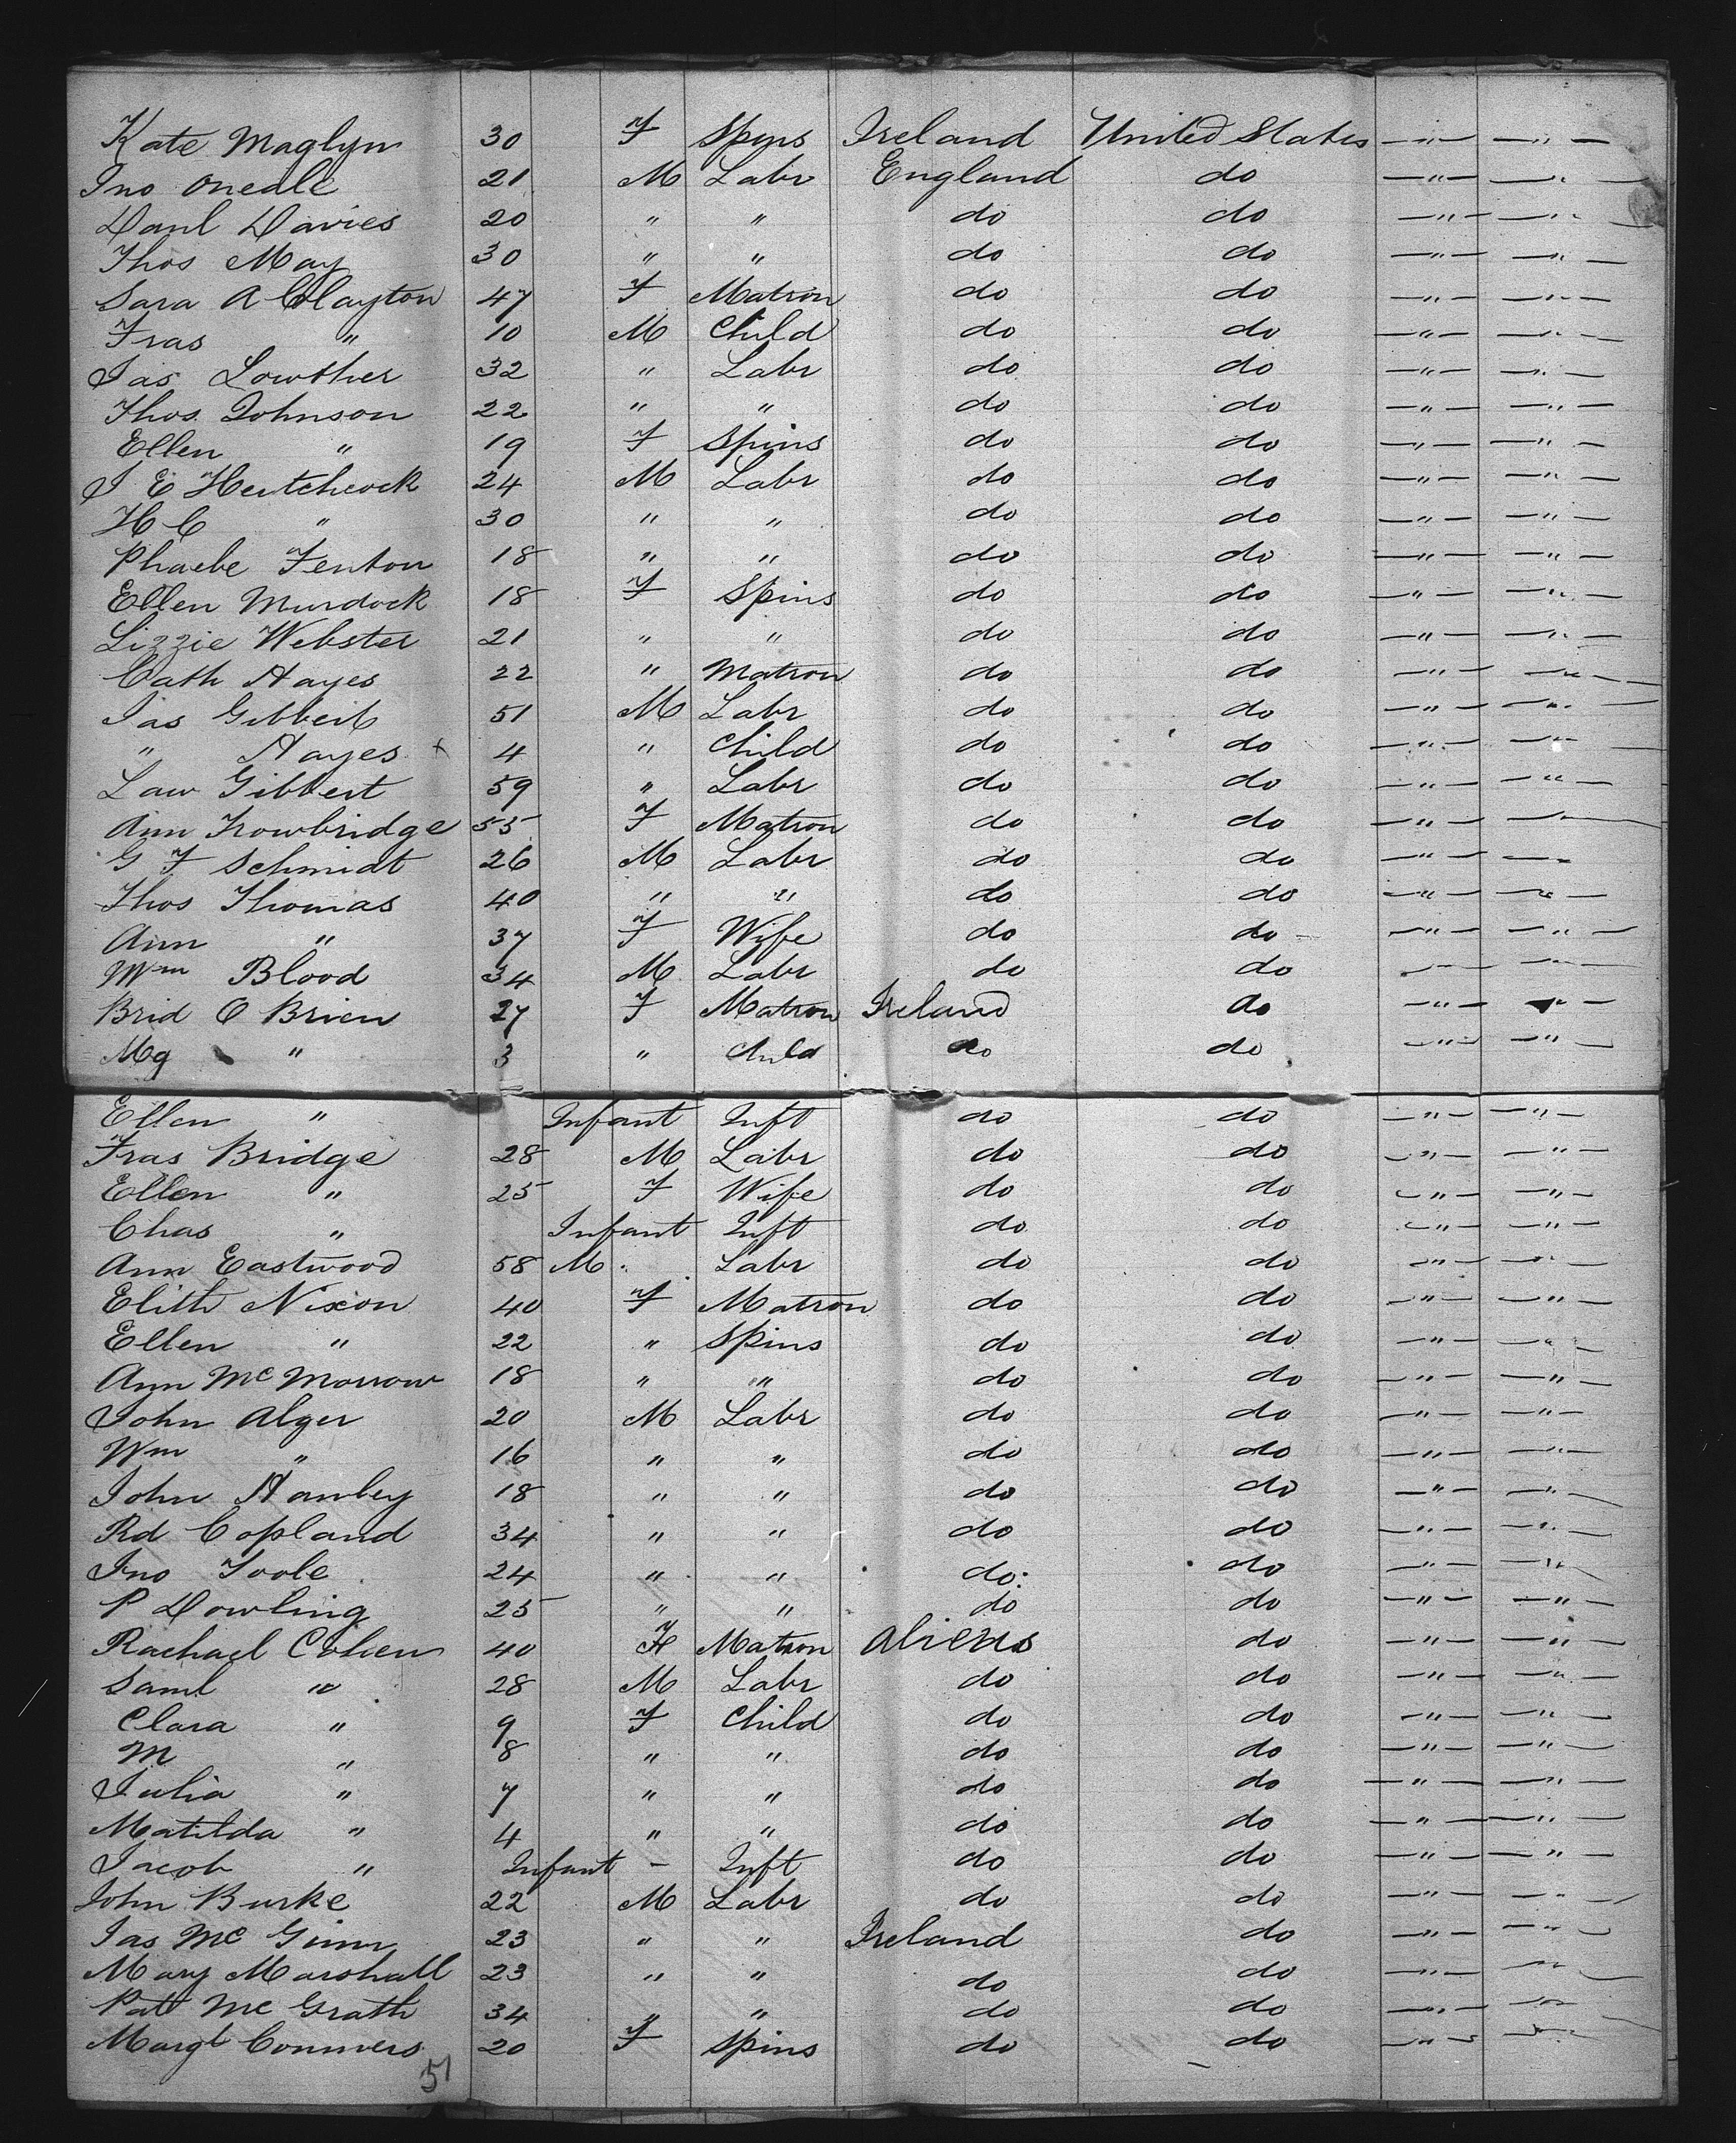 Kate Maglyn 30 F Spns Ireland United States — " — — " —
Jno Oneale 21 M Labr England do — " — — " —
Danl Davies 20 " " do do — " — — " —
Thos May 30 " " do do — " — — " —
Sara A Clayton 47 F Matron do do — " — — " —
Fras " 10 M Child do do — " — — " —
Jas Lowther 32 " Labr do do — " — — " —
Thos Johnson 22 " " do do — " — — " —
Ellen " 19 F Spins do do — " — — " —
J E Heutchcock 24 M Labr do do — " — — " —
H C " 30 " " do do — " — — " —
Phaebe Fenton 18 " " do do — " — — " —
Ellen Murdock 18 F Spins do do — " — — " —
Lizzie Webster 21 " " do do — " — — " —
Cath Hayes 22 " Matron do do — " — — " —
Jas Gibbert 51 M Labr do do — " — — " —
" Hayes x 4 " Child do do — " — — " —
Law Gibbert 59 " Labr do do — " — — " —
Ann Trowbridge 55 F Matron do do — " — — " —
G F Schmidt 26 M Labr do do — " — — " —
Thos Thomas 40 " " do do — " — — " —
Ann " 37 F Wife do do — " — — " —
Wm Blood 34 M Labr do do — " — — " —
Brid O Brien 27 F Matron Ireland do — " — — " —
Mg " 3 " Child do do — " — — " —
Ellen " Infant Inft do do — " — — " —
Fras Bridge 28 M Labr do do — " — — " —
Ellen " 25 F Wife do do — " — — " —
Chas " Infant Inft do do — " — — " —
Ann Eastwood 58 M Labr do do — " — — " —
Elith Nixon 40 F Matron do do — " — — " —
Ellen " 22 " Spins do do — " — — " —
Ann Mc Morrow 18 " " do do — " — — " —
John Alger 20 M Labr do do — " — — " —
Wm " 16 " " do do — " — — " —
John Hanley 18 " " do do — " — — " —
Rd Copland 34 " " do do — " — — " —
Jno Toole 24 " " do do — " — — " —
P Dowling 25 " " do do — " — — " —
Rachael Cohen 40 F Matron Aliens do — " — — " —
Saml " 28 M Labr do do — " — — " —
Clara " 9 F Child do do — " — — " —
M " 8 " " do do — " — — " —
Julia " 7 " " do do — " — — " —
Matilda " 4 " " do do — " — — " —
Jacob " Infant - Inft do do — " — — " —
John Burke 22 M Labr do do — " — — " —
Jas Mc Ginn 23 " " Ireland do — " — — " —
Mary Marshall 23 " " do do — " — — " —
Pat Mc Grath 34 " " do do — " — — " —
Margt Conners 20 F Spins do do — " — — " —
51